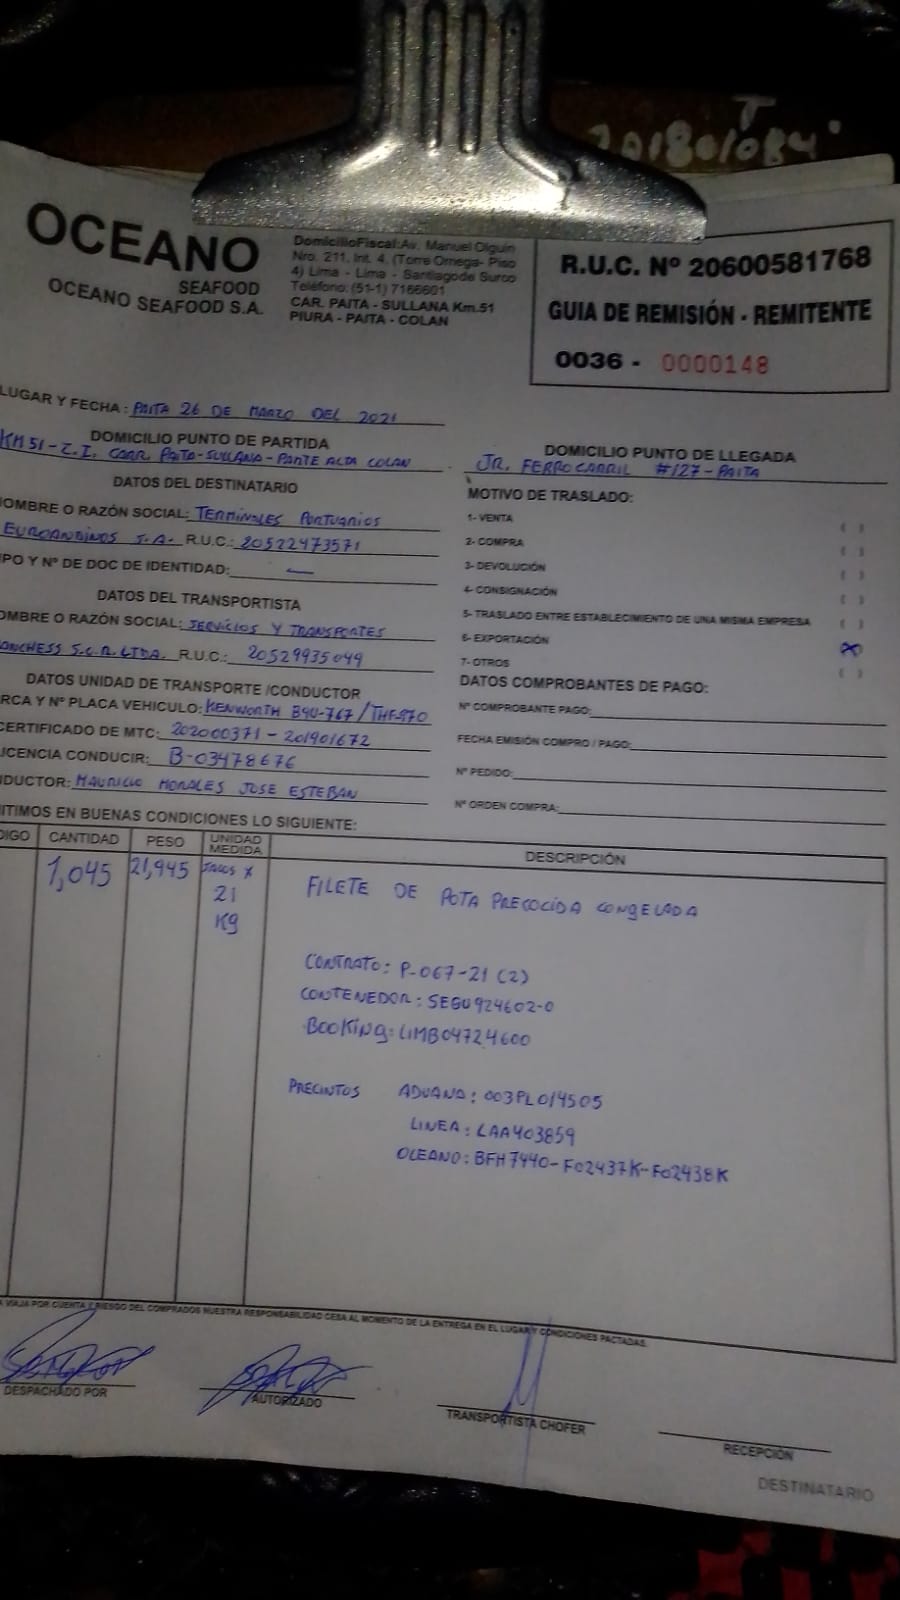 T
201801084
OCEANO
SEAFOOD
OCEANO SEAFOOD S.A.
DomicilioFiscal:Av. Manuel Olguin
Nro. 211. Int. 4. (Torre Omega- Piso
4) Lima - Lima - Santiagode Surco
Teléfono: (51-1) 7166601
CAR. PAITA - SULLANA Km.51
PIURA - PAITA - COLAN
R.U.C. Nº 20600581768
GUIA DE REMISIÓN - REMITENTE
0036 - 0000148
LUGAR Y FECHA: PAITA 26 DE MARZO DEL 2021
DOMICILIO PUNTO DE PARTIDA
KM 51 - Z.I. CARR. PAITA-SULLANA-PARTE ALTA COLAN
DOMICILIO PUNTO DE LLEGADA
JR. FERROCARRIL #127-PAITA
DATOS DEL DESTINATARIO
OMBRE O RAZÓN SOCIAL: TERMINALES PORTUARIOS
EUROANDINOS S.A. R.U.C.: 20522473571
IPO Y Nº DE DOC DE IDENTIDAD: —
DATOS DEL TRANSPORTISTA
OMBRE O RAZÓN SOCIAL: SERVICIOS Y TRANSPORTES
ANCHESS S.C.R. LTDA. R.U.C.: 20529935049
DATOS UNIDAD DE TRANSPORTE /CONDUCTOR
RCA Y Nº PLACA VEHICULO: KENWORTH B9U-767/THF-970
CERTIFICADO DE MTC: 202000371 - 201901672
ICENCIA CONDUCIR: B-03478676
DUCTOR: MAURICIO MORALES JOSE ESTEBAN
MOTIVO DE TRASLADO:
1- VENTA ( )
2- COMPRA ( )
3- DEVOLUCIÓN ( )
4- CONSIGNACIÓN ( )
5- TRASLADO ENTRE ESTABLECIMIENTO DE UNA MISMA EMPRESA ( )
6- EXPORTACIÓN (X)
7- OTROS ( )
DATOS COMPROBANTES DE PAGO:
Nº COMPROBANTE PAGO:
FECHA EMISIÓN COMPRO / PAGO:
Nº PEDIDO:
Nº ORDEN COMPRA:
ITIMOS EN BUENAS CONDICIONES LO SIGUIENTE:
DIGO CANTIDAD PESO UNIDAD MEDIDA DESCRIPCIÓN
1,045 21,945 SACOS X
21
Kg
FILETE DE POTA PRECOCIDA CONGELADA
CONTRATO: P-067-21 (2)
CONTENEDOR: SEGU924602-0
BOOKING: LIMB04724600
PRECINTOS ADUANA: 003PL014505
LINEA: LAA403859
OCEANO: BFH7440-F02437K-F02438K
A VIAJA POR CUENTA Y RIESGO DEL COMPRADOS NUESTRA RESPONSABILIDAD CESA AL MOMENTO DE LA ENTREGA EN EL LUGAR Y CONDICIONES PACTADAS.
DESPACHADO POR
AUTORIZADO
TRANSPORTISTA CHOFER
RECEPCIÓN
DESTINATARIO